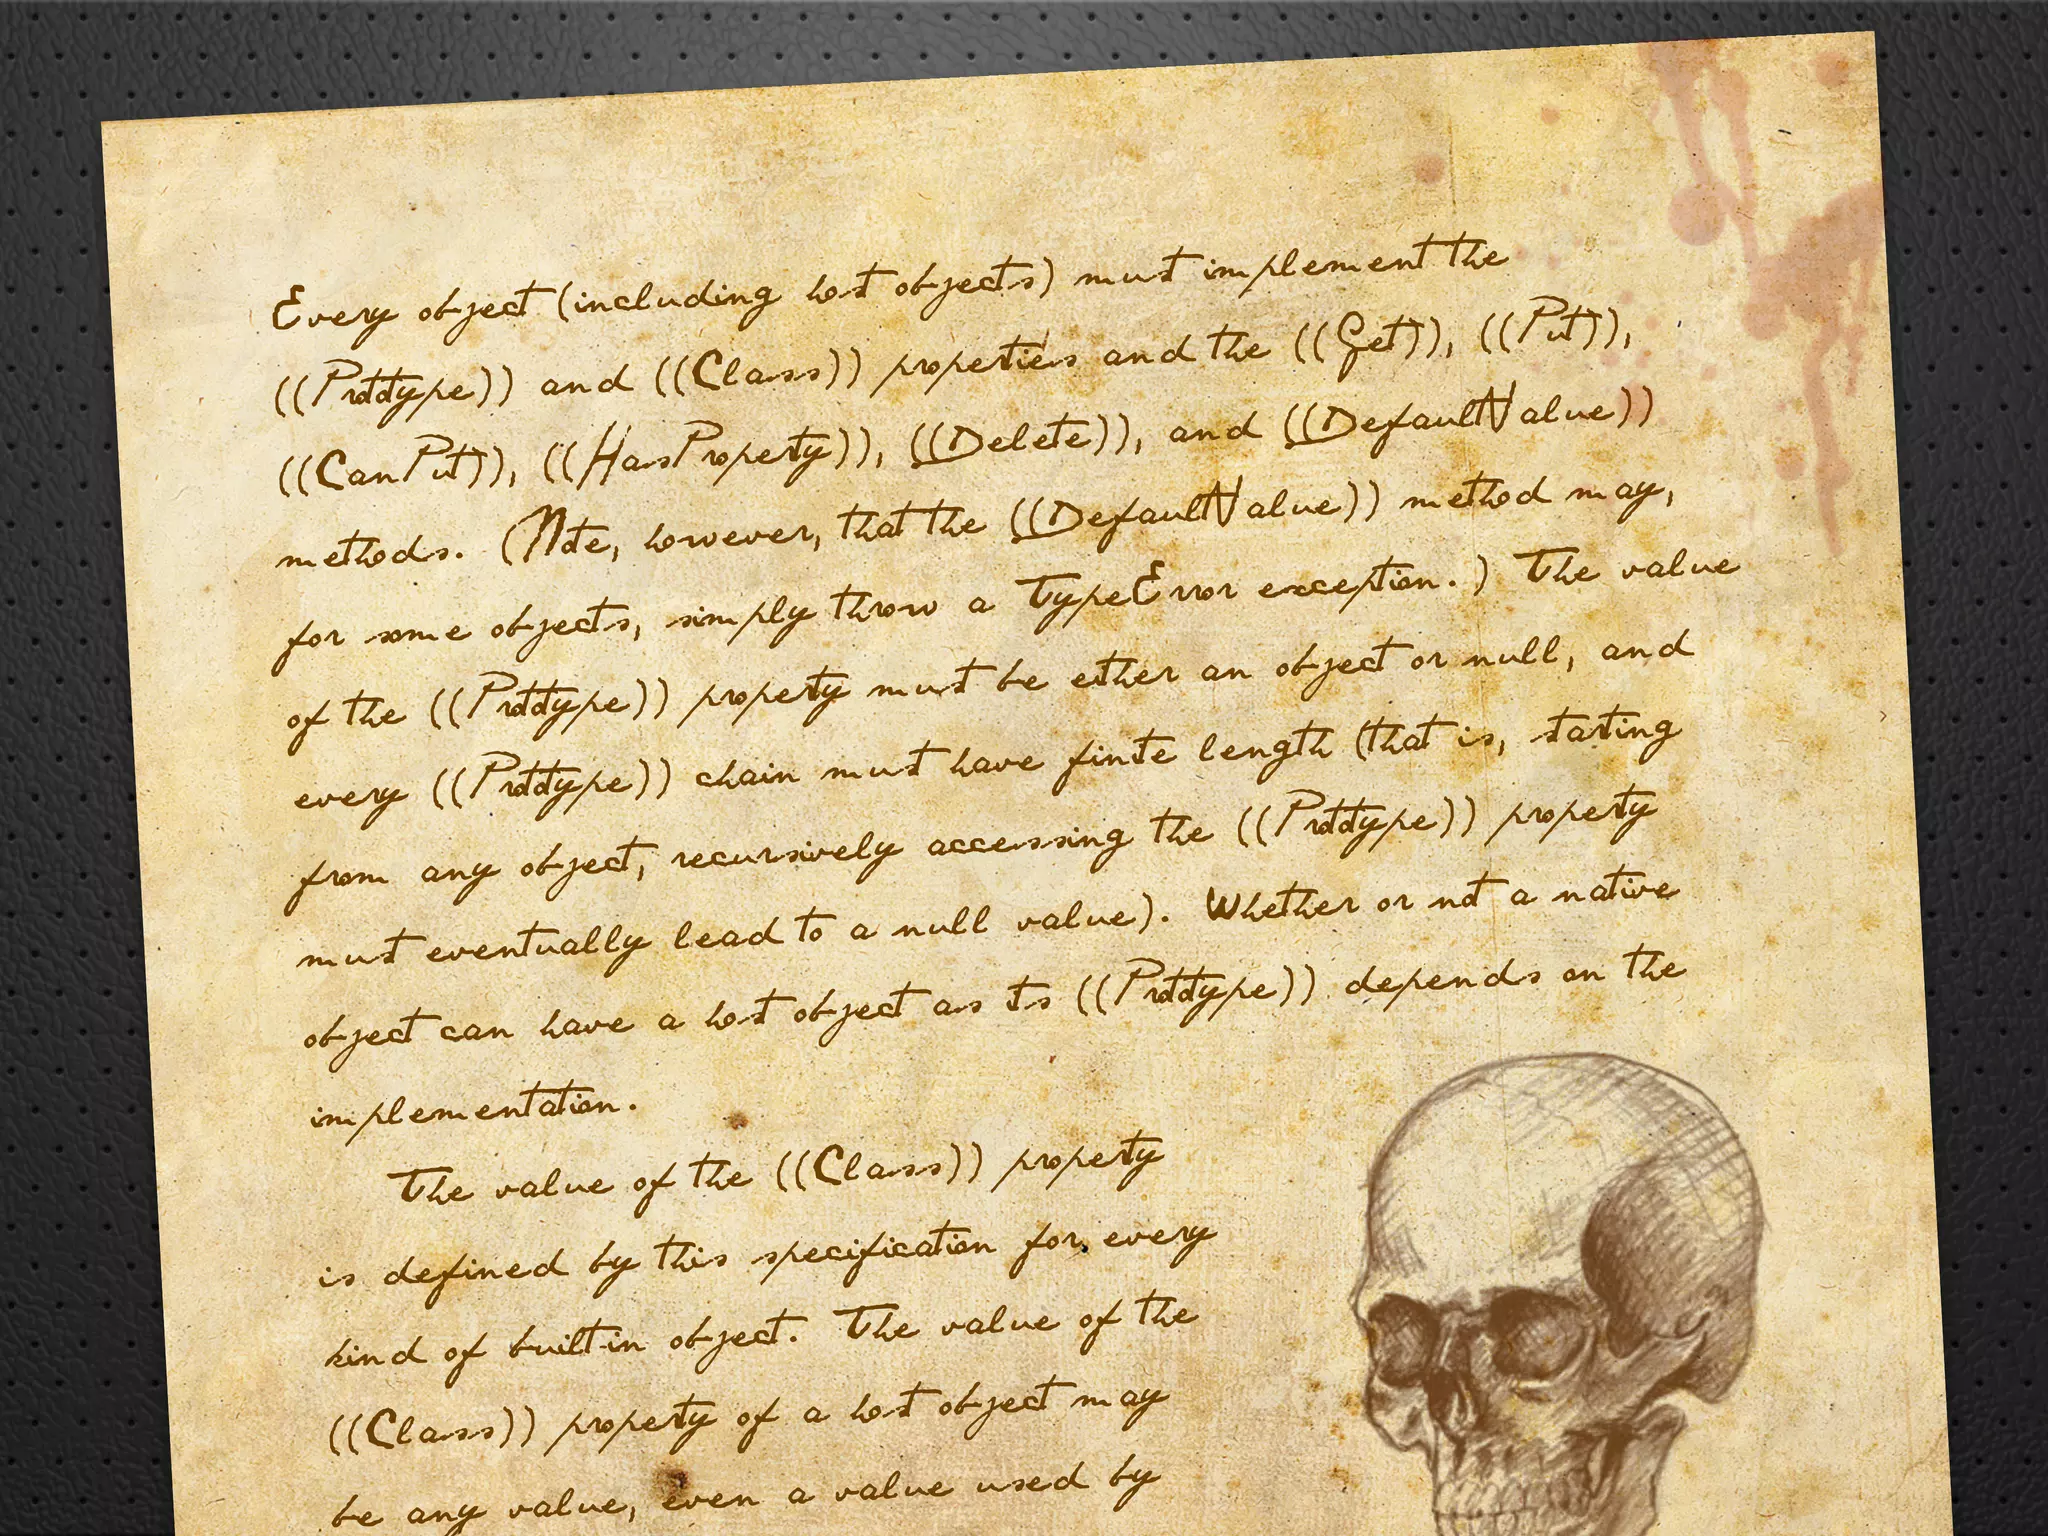 Every object (including host objects) must implement the
((Prototype)) and ((Class)) properties and the ((Get)), ((Put)),
((CanPut)), ((HasProperty)), ((Delete)), and ((DefaultValue))
methods. (Note, however, that the ((DefaultValue)) method may,
for some objects, simply throw a TypeError exception.) The value
of the ((Prototype)) property must be either an object or null, and
every ((Prototype)) chain must have finite length (that is, starting
from any object, recursively accessing the ((Prototype)) property
must eventually lead to a null value). Whether or not a native
object can have a host object as its ((Prototype)) depends on the
implementation.
The value of the ((Class)) property
is defined by this specification for every
kind of built-in object. The value of the
((Class)) property of a host object may
be any value, even a value used by